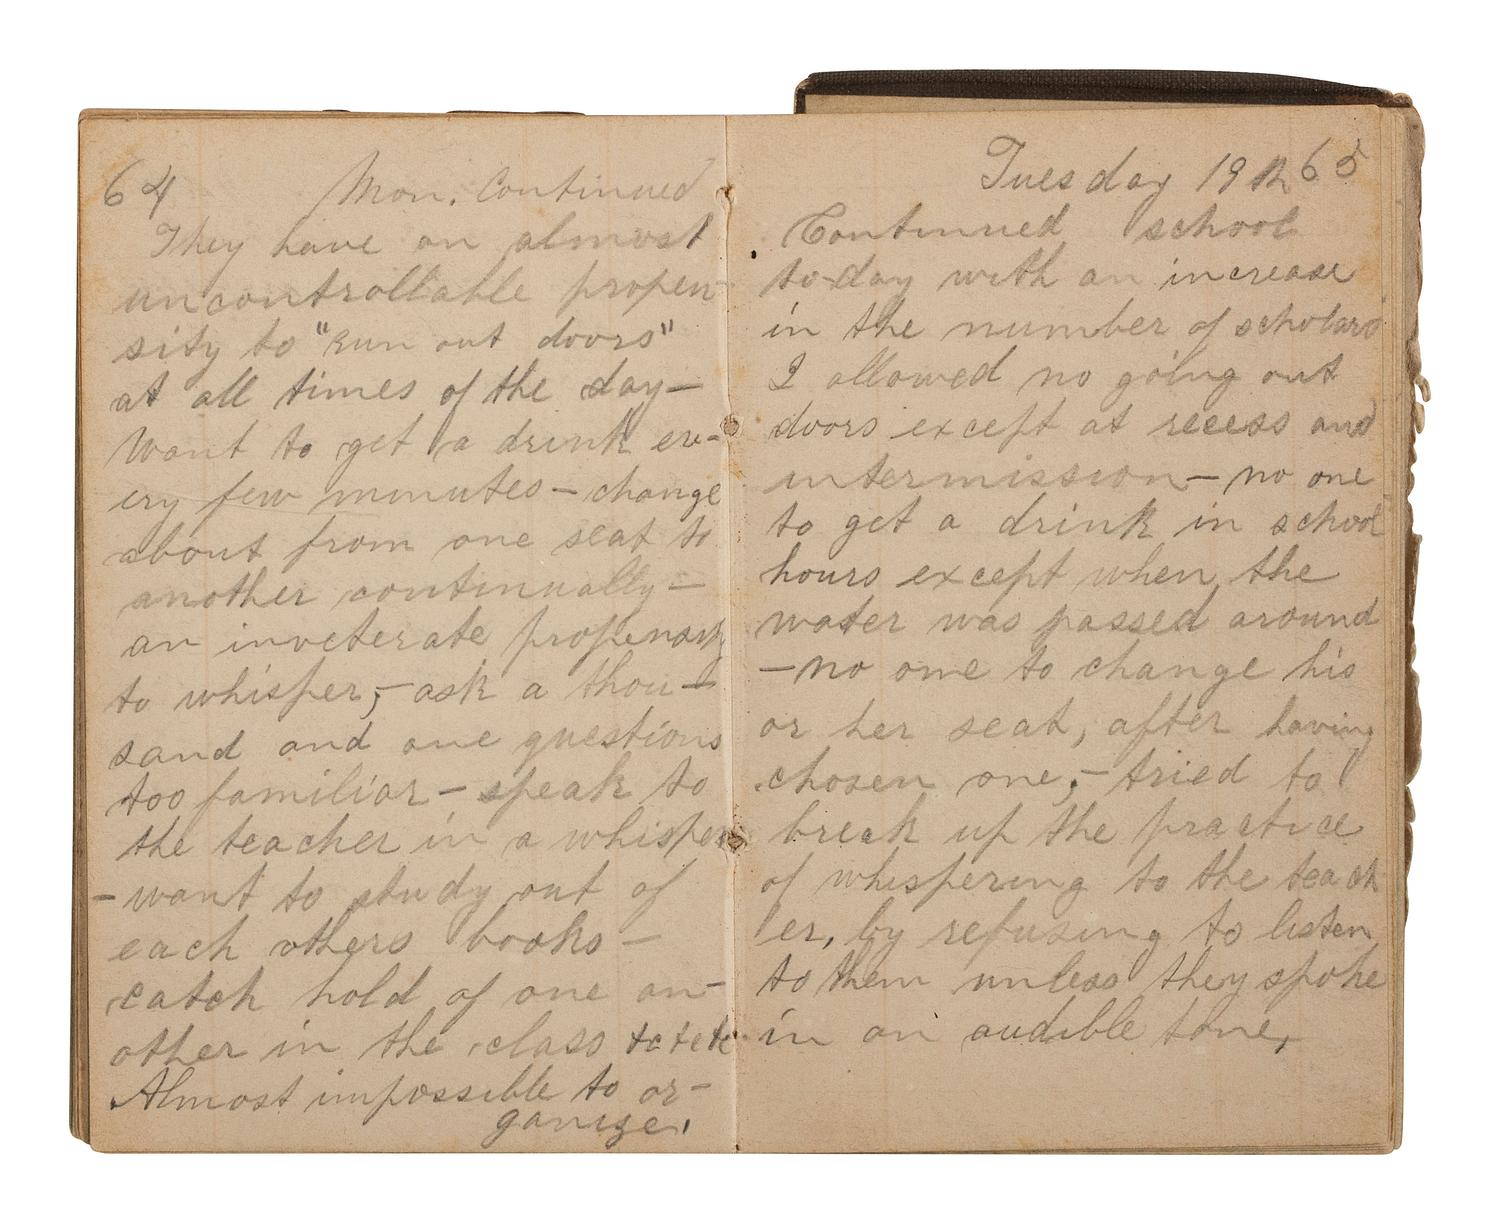 64 Mon. Continued
They have an almost
uncontrollable propen-
sity to "run out doors"
at all times of the day—
Want to get a drink ev-
ery few minutes – change
about from one seat to
another continually –
an inveterate propensity
to whisper, – ask a thou-
sand and one questions
too familiar – speak to
the teacher in a whisper
– want to study out of
each others books –
catch hold of one an-
other in the class etc etc
Almost impossible to or-
ganize.
Tuesday 19th 65
Continued school
to-day with an increase
in the number of scholars
I allowed no going out
doors except at recess and
intermission – no one
to get a drink in school
hours except when the
water was passed around
– no one to change his
or her seat, after having
chosen one, – tried to
break up the practice
of whispering to the teach
er, by refusing to listen
to them unless they spoke
in an audible tone,